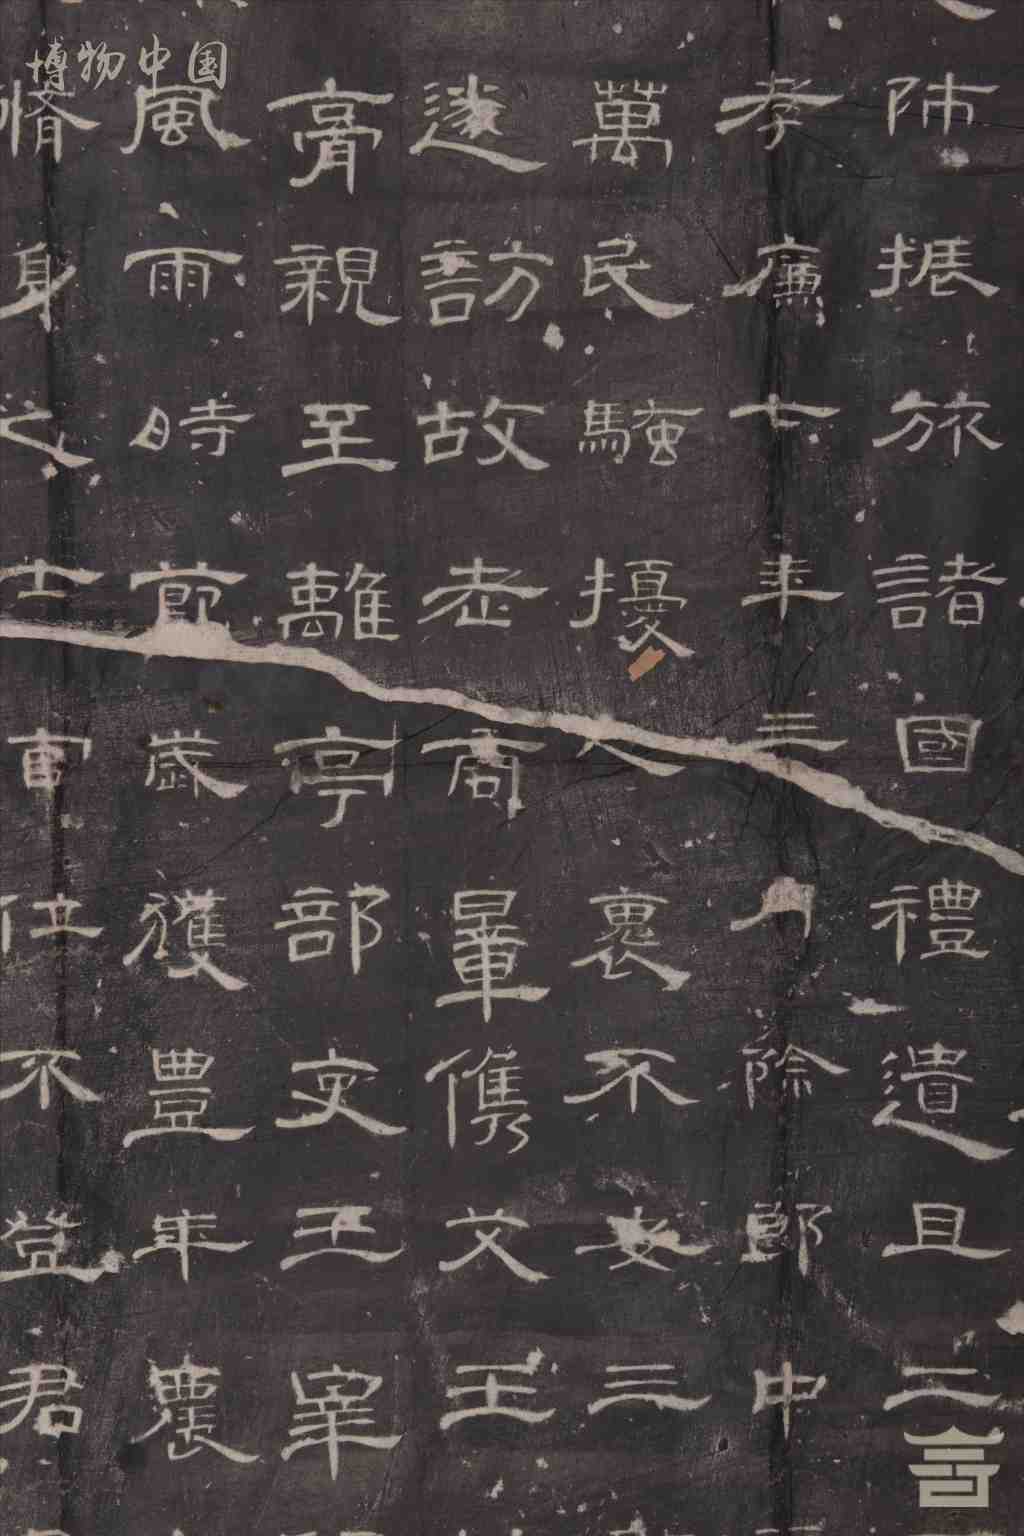 博物中国
師振旅諸國禮遺且二
孝廉七年三月除郎中
萬民騷擾人褱不安三
遂訪故老商量儁艾王
膏親至離亭部吏王宰
風雨時節歲獲豐年農
脩身之士官位不登君